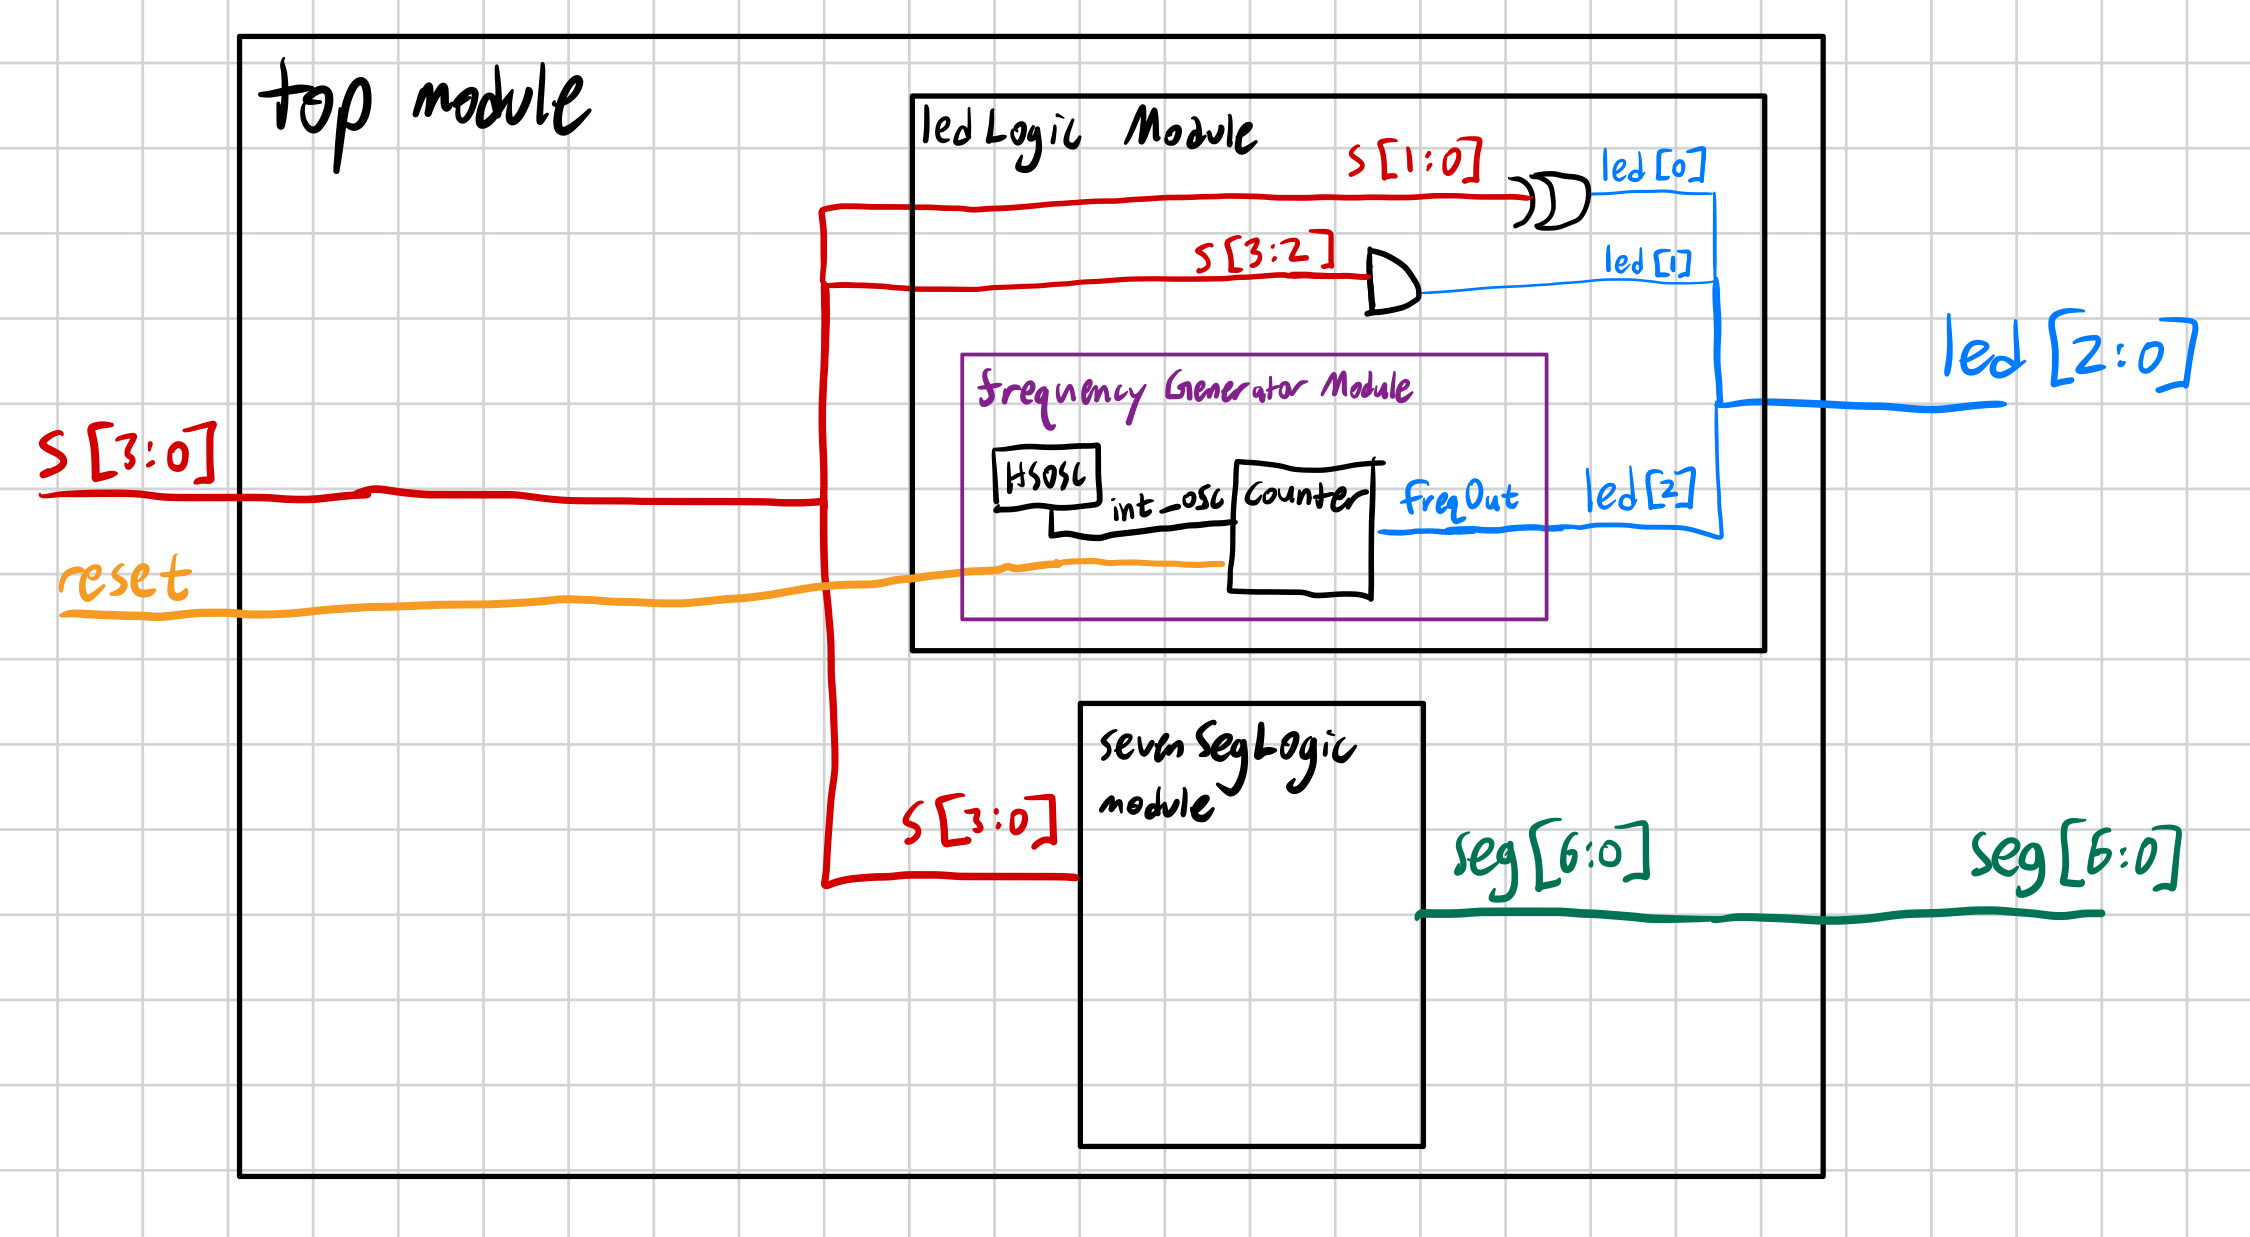 top module
led Logic Module
S[1:0]
led[0]
S[3:2]
led[1]
led[2:0]
frequency Generator Module
S[3:0]
HSOSC
int_osc
counter
freqOut
led[2]
reset
seven Seg Logic
module
S[3:0]
seg[6:0]
seg[6:0]